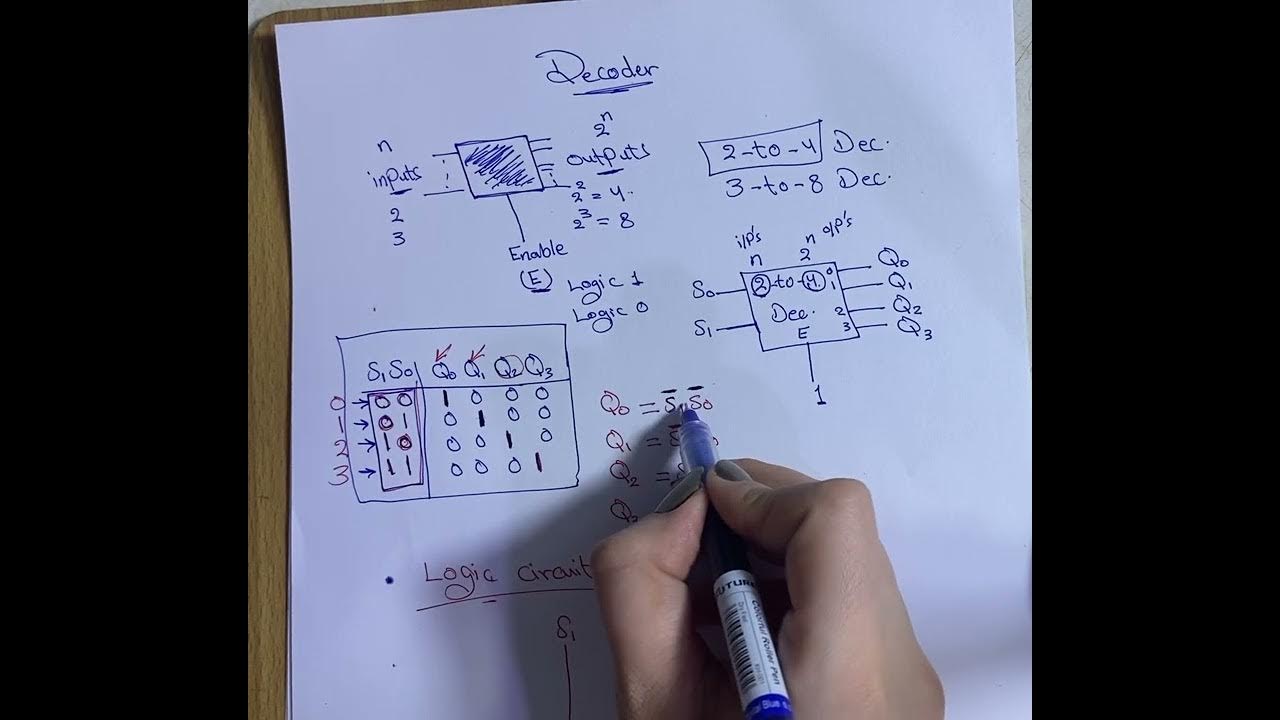 Decoder
n
inputs
2
3
2ⁿ
outputs
2² = 4
2³ = 8
Enable
(E)
Logic 1
Logic 0
2-to-4 Dec.
3-to-8 Dec.
i/p's
n
2ⁿ o/p's
S0
S1
2-to-4
Dec.
E
0
1
2
3
Q0
Q1
Q2
Q3
1
S1 S0 Q0 Q1 Q2 Q3
0 → 0 0 1 0 0 0
1 → 0 1 0 1 0 0
2 → 1 0 0 0 1 0
3 → 1 1 0 0 0 1
Q0 = S̅1 S̅0
Q1 =
Q2 =
Logic circuit
S1
Colorful Roller Pen